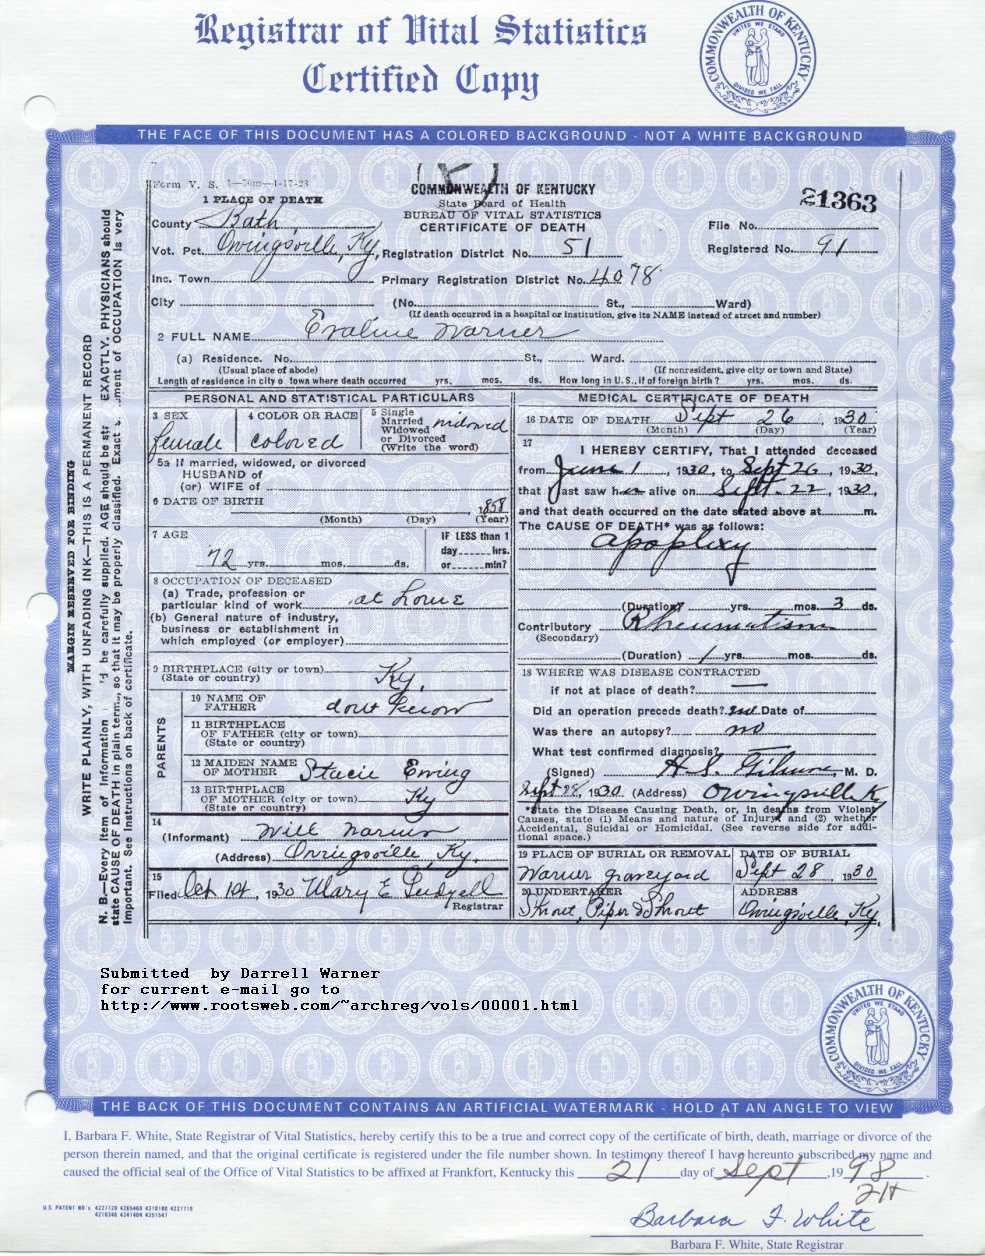 Registrar of Vital Statistics
Certified Copy
COMMONWEALTH OF KENTUCKY
UNITED WE STAND
DIVIDED WE FALL
THE FACE OF THIS DOCUMENT HAS A COLORED BACKGROUND · NOT A WHITE BACKGROUND
MARGIN RESERVED FOR BINDING
WRITE PLAINLY, WITH UNFADING INK—THIS IS A PERMANENT RECORD
N. B.—Every item of information be carefully supplied. AGE should be EXACTLY. PHYSICIANS should
state CAUSE OF DEATH in plain so that it may be properly classified. Exact of OCCUPATION is very
important. See instructions on back of certificate.
Form V. S.
1 PLACE OF DEATH
County Bath
Vot. Pct. Owingsville, Ky,
Inc. Town
City
COMMONWEALTH OF KENTUCKY
State Board of Health
BUREAU OF VITAL STATISTICS
CERTIFICATE OF DEATH
21363
File No.
Registered No. 91
Registration District No. 51
Primary Registration District No. 4078
(No. St., Ward)
(If death occurred in a hospital or institution, give its NAME instead of street and number)
2 FULL NAME Evaline Warner
(a) Residence. No. St., Ward.
(Usual place of abode) (If nonresident, give city or town and State)
Length of residence in city o town where death occurred yrs. mos. ds. How long in U. S., if of foreign birth? yrs. mos. ds.
PERSONAL AND STATISTICAL PARTICULARS
3 SEX
female
4 COLOR OR RACE
colored
5 Single
Married
Widowed
or Divorced
(Write the word)
widowed
5a If married, widowed, or divorced
HUSBAND of
(or) WIFE of
6 DATE OF BIRTH
1858
(Month) (Day) (Year)
7 AGE
72 yrs. mos. ds.
IF LESS than 1
day hrs.
or min?
8 OCCUPATION OF DECEASED
(a) Trade, profession or
particular kind of work at home
(b) General nature of industry,
business or establishment in
which employed (or employer)
9 BIRTHPLACE (city or town)
(State or country) Ky.
PARENTS
10 NAME OF
FATHER dont know
11 BIRTHPLACE
OF FATHER (city or town)
(State or country)
12 MAIDEN NAME
OF MOTHER Stacie Ewing
13 BIRTHPLACE
OF MOTHER (city or town)
(State or country) Ky
14
(Informant) Will Warner
(Address) Owingsville, Ky.
15
Filed Oct 1st, 1930 Mary E
Registrar
MEDICAL CERTIFICATE OF DEATH
16 DATE OF DEATH Sept 26, 1930
(Month) (Day) (Year)
17
I HEREBY CERTIFY, That I attended deceased
from June 1, 1930, to Sept 26, 1930,
that I last saw her alive on Sept. 22, 1930,
and that death occurred on the date stated above at m.
The CAUSE OF DEATH* was as follows:
apoplexy
(Duration) yrs. mos. 3 ds.
Contributory Rheumatism
(Secondary)
(Duration) 1 yrs. mos. ds.
18 WHERE WAS DISEASE CONTRACTED
if not at place of death?
Did an operation precede death? Date of
Was there an autopsy? no
What test confirmed diagnosis?
(Signed) H. S. Gilmore, M. D.
Sept 28, 1930. (Address) Owingsville Ky
*State the Disease Causing Death, or, in deaths from Violent
Causes, state (1) Means and nature of Injury and (2) whether
Accidental, Suicidal or Homicidal. (See reverse side for addi-
tional space.)
19 PLACE OF BURIAL OR REMOVAL
Warner graveyard
DATE OF BURIAL
Sept 28, 1930
20 UNDERTAKER
Shrout, Piper & Shrout
ADDRESS
Owingsville, Ky.
Submitted by Darrell Warner
for current e-mail go to
http://www.rootsweb.com/~archreg/vols/00001.html
COMMONWEALTH OF KENTUCKY
UNITED WE STAND
DIVIDED WE FALL
THE BACK OF THIS DOCUMENT CONTAINS AN ARTIFICIAL WATERMARK - HOLD AT AN ANGLE TO VIEW
I, Barbara F. White, State Registrar of Vital Statistics, hereby certify this to be a true and correct copy of the certificate of birth, death, marriage or divorce of the
person therein named, and that the original certificate is registered under the file number shown. In testimony thereof I have hereunto subscribed my name and
caused the official seal of the Office of Vital Statistics to be affixed at Frankfort, Kentucky this 21 day of Sept, 1998.
Barbara F. White
Barbara F. White, State Registrar
U.S. PATENT NO's